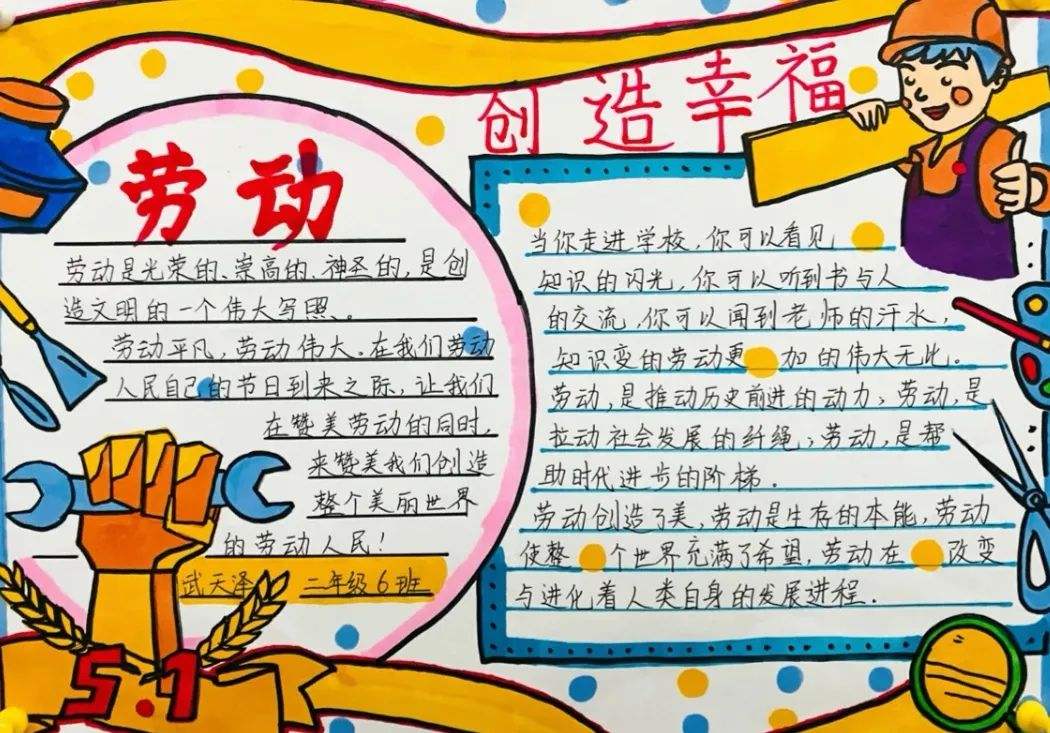 创造幸福
劳动
劳动是光荣的、崇高的、神圣的,是创
造文明的一个伟大写照、。
劳动平凡,劳动伟大。在我们劳动
人民自己的节日到来之际,让我们
在赞美劳动的同时,
来赞美我们创造
整个美丽世界
的劳动人民!
武天泽 二年级6班
5.1
当你走进学校,你可以看见
知识的闪光,你可以听到书与人
的交流,你可以闻到老师的汗水,
知识变的劳动更加的伟大无比。
劳动,是推动历史前进的动力,劳动,是
拉动社会发展的纤绳,劳动,是帮
助时代进步的阶梯.
劳动创造了美,劳动是生存的本能,劳动
使整个世界充满了希望,劳动在改变
与进化着人类自身的发展进程.